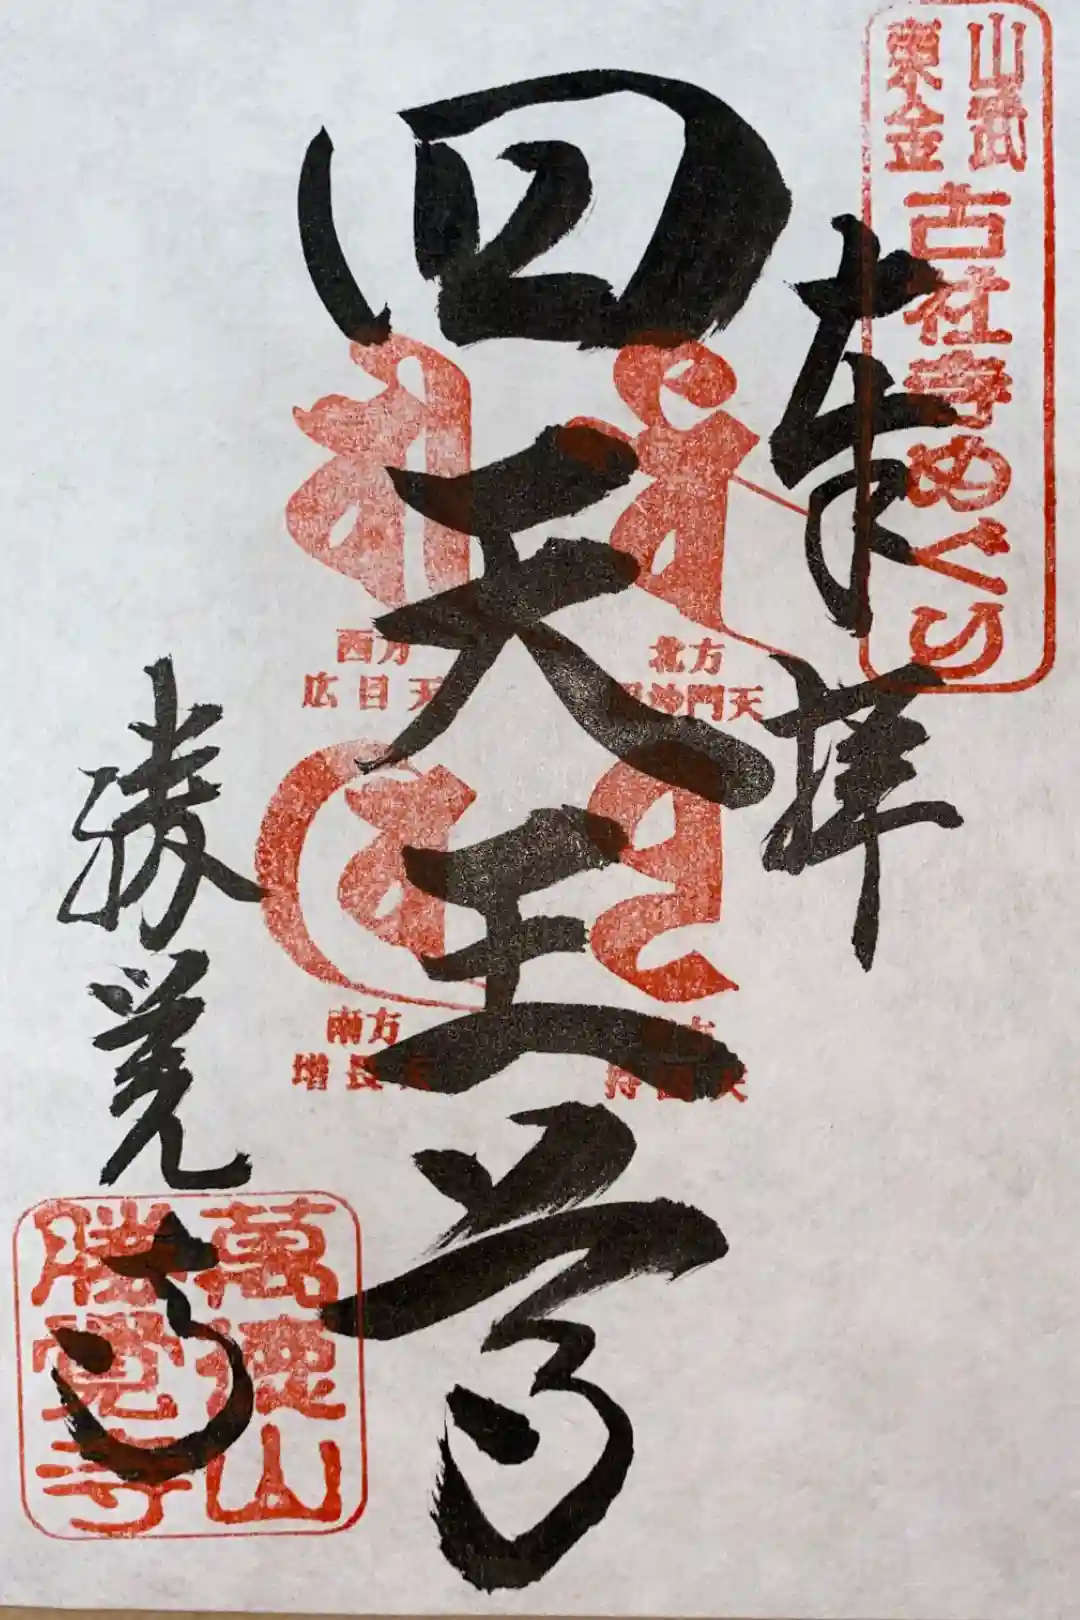 山武
東金
古社寺めぐり
奉拝
四天王尊
北方
毘沙門天
西方
広目天
南方
増長天
勝覚寺
萬徳山
勝覺寺